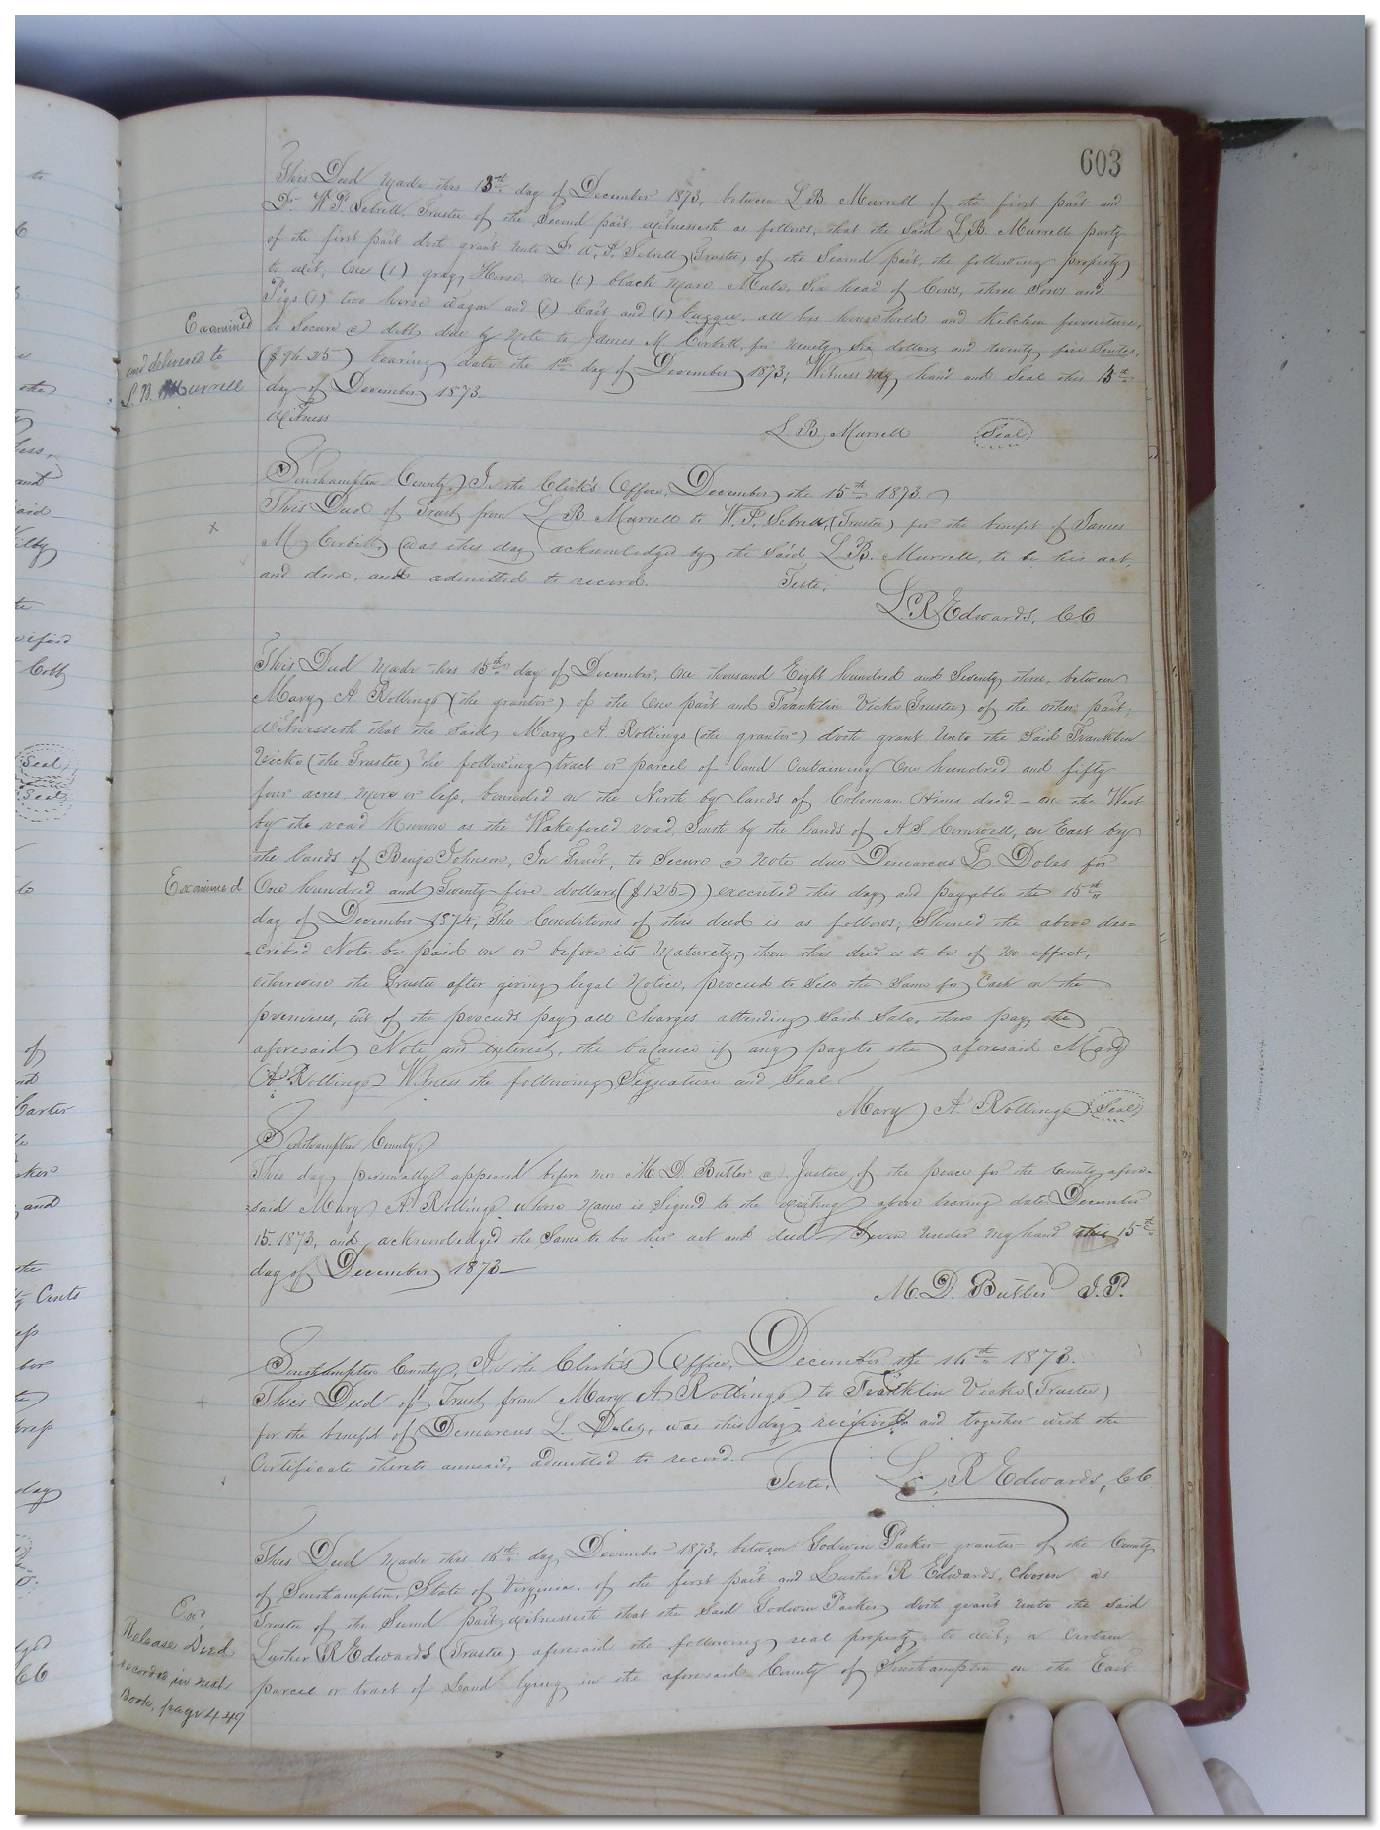 603
This Deed Made this 13th day of December 1873, between L. B. Murrell of the first part and
Dr. W. P. Sebrell, Trustee of the Second part, Witnesseth as follows, that the Said L. B. Murrell party
of the first part doth grant unto Dr. W. P. Sebrell (Trustee) of the Second part, the following property
to wit, One (1) gray Horse, one (1) black mare Mule, Six head of Cows, three Sows and
Pigs (1) two horse Wagon and (1) Cart and (1) buggie, all his household and Kitchen furniture,
to Secure a debt due by Note to James M. Corbett, for Ninety Six dollars and twenty five Cents,
($96.25) bearing date the 1st day of December 1873; Witness my hand and Seal this 13th
day of December 1873.
Witness
L. B. Murrell Seal
Examined
and delivered to
L. B. Murrell
Southampton County, In the Clerk's Office, December the 15th 1873
This Deed of Trust from L. B. Murrell to W. P. Sebrell, (Trustee) for the benefit of James
M. Corbett, was this day acknowledged by the Said L. B. Murrell, to be his act,
and deed, and admitted to record.
Teste,
L. R. Edwards, CC
This Deed Made this 15th day of December, One thousand Eight hundred and Seventy three, between
Mary A. Rollings (the grantor) of the One part and Franklin Vicks (Trustee) of the other part,
Witnesseth that the Said, Mary A. Rollings (the grantor) doth grant Unto the Said Franklin
Vicks (the Trustee) the following tract or parcel of land Containing One hundred and fifty
four acres more or less, bounded on the North by lands of Coleman Hines decd - on the West
by the road Known as the Wakefield road, South by the lands of A S Cornwell, on East by
the lands of Benja Johnson, In Trust, to Secure a Note due Demarcus L Doles for
One hundred and Twenty-five dollars ($125) executed this day and payable the 15th
day of December 1874; The Conditions of this deed is as follows; Should the above des-
cribed Note be paid on or before its Maturity, then this deed is to be of no effect,
otherwise the Trustee after giving legal Notice, proceed to Sell the Same for Cash on the
premises, out of the proceeds pay all Charges attending Said Sale, then pay the
aforesaid Note and interest, the balance if any pay to the aforesaid Mary
A Rollings Witness the following Signature and Seal
Mary A. Rollings Seal
Examined
Southampton County,
This day personally appeared before me M. D. Butler a Justice of the peace for the County afore-
said Mary A. Rollings whose Name is Signed to the writing above bearing date December
15. 1873, and acknowledged the Same to be her act and deed Given Under my hand this 15th
day of December 1873
M. D. Butler J. P.
Southampton County, In the Clerk's Office, December the 16th 1873.
This Deed of Trust from Mary A. Rollings to Franklin Vicks (Trustee)
for the benefit of Demarcus L. Doles, was this day received and together with the
Certificate thereto annexed, admitted to record.
Teste, L. R Edwards, CC
This Deed Made this 16th day December 1873, between Godwin Parker grantor of the County
of Southampton, State of Virginia, of the first part and Luther R Edwards, chosen as
Trustee of the Second part, Witnesseth that the Said Godwin Parker doth grant unto the Said
Luther R Edwards (Trustee) aforesaid the following real property to wit; a Certain
parcel or tract of Land lying in the aforesaid County of Southampton on the East
Exd
Release Deed
recorded in next
Book, page 449